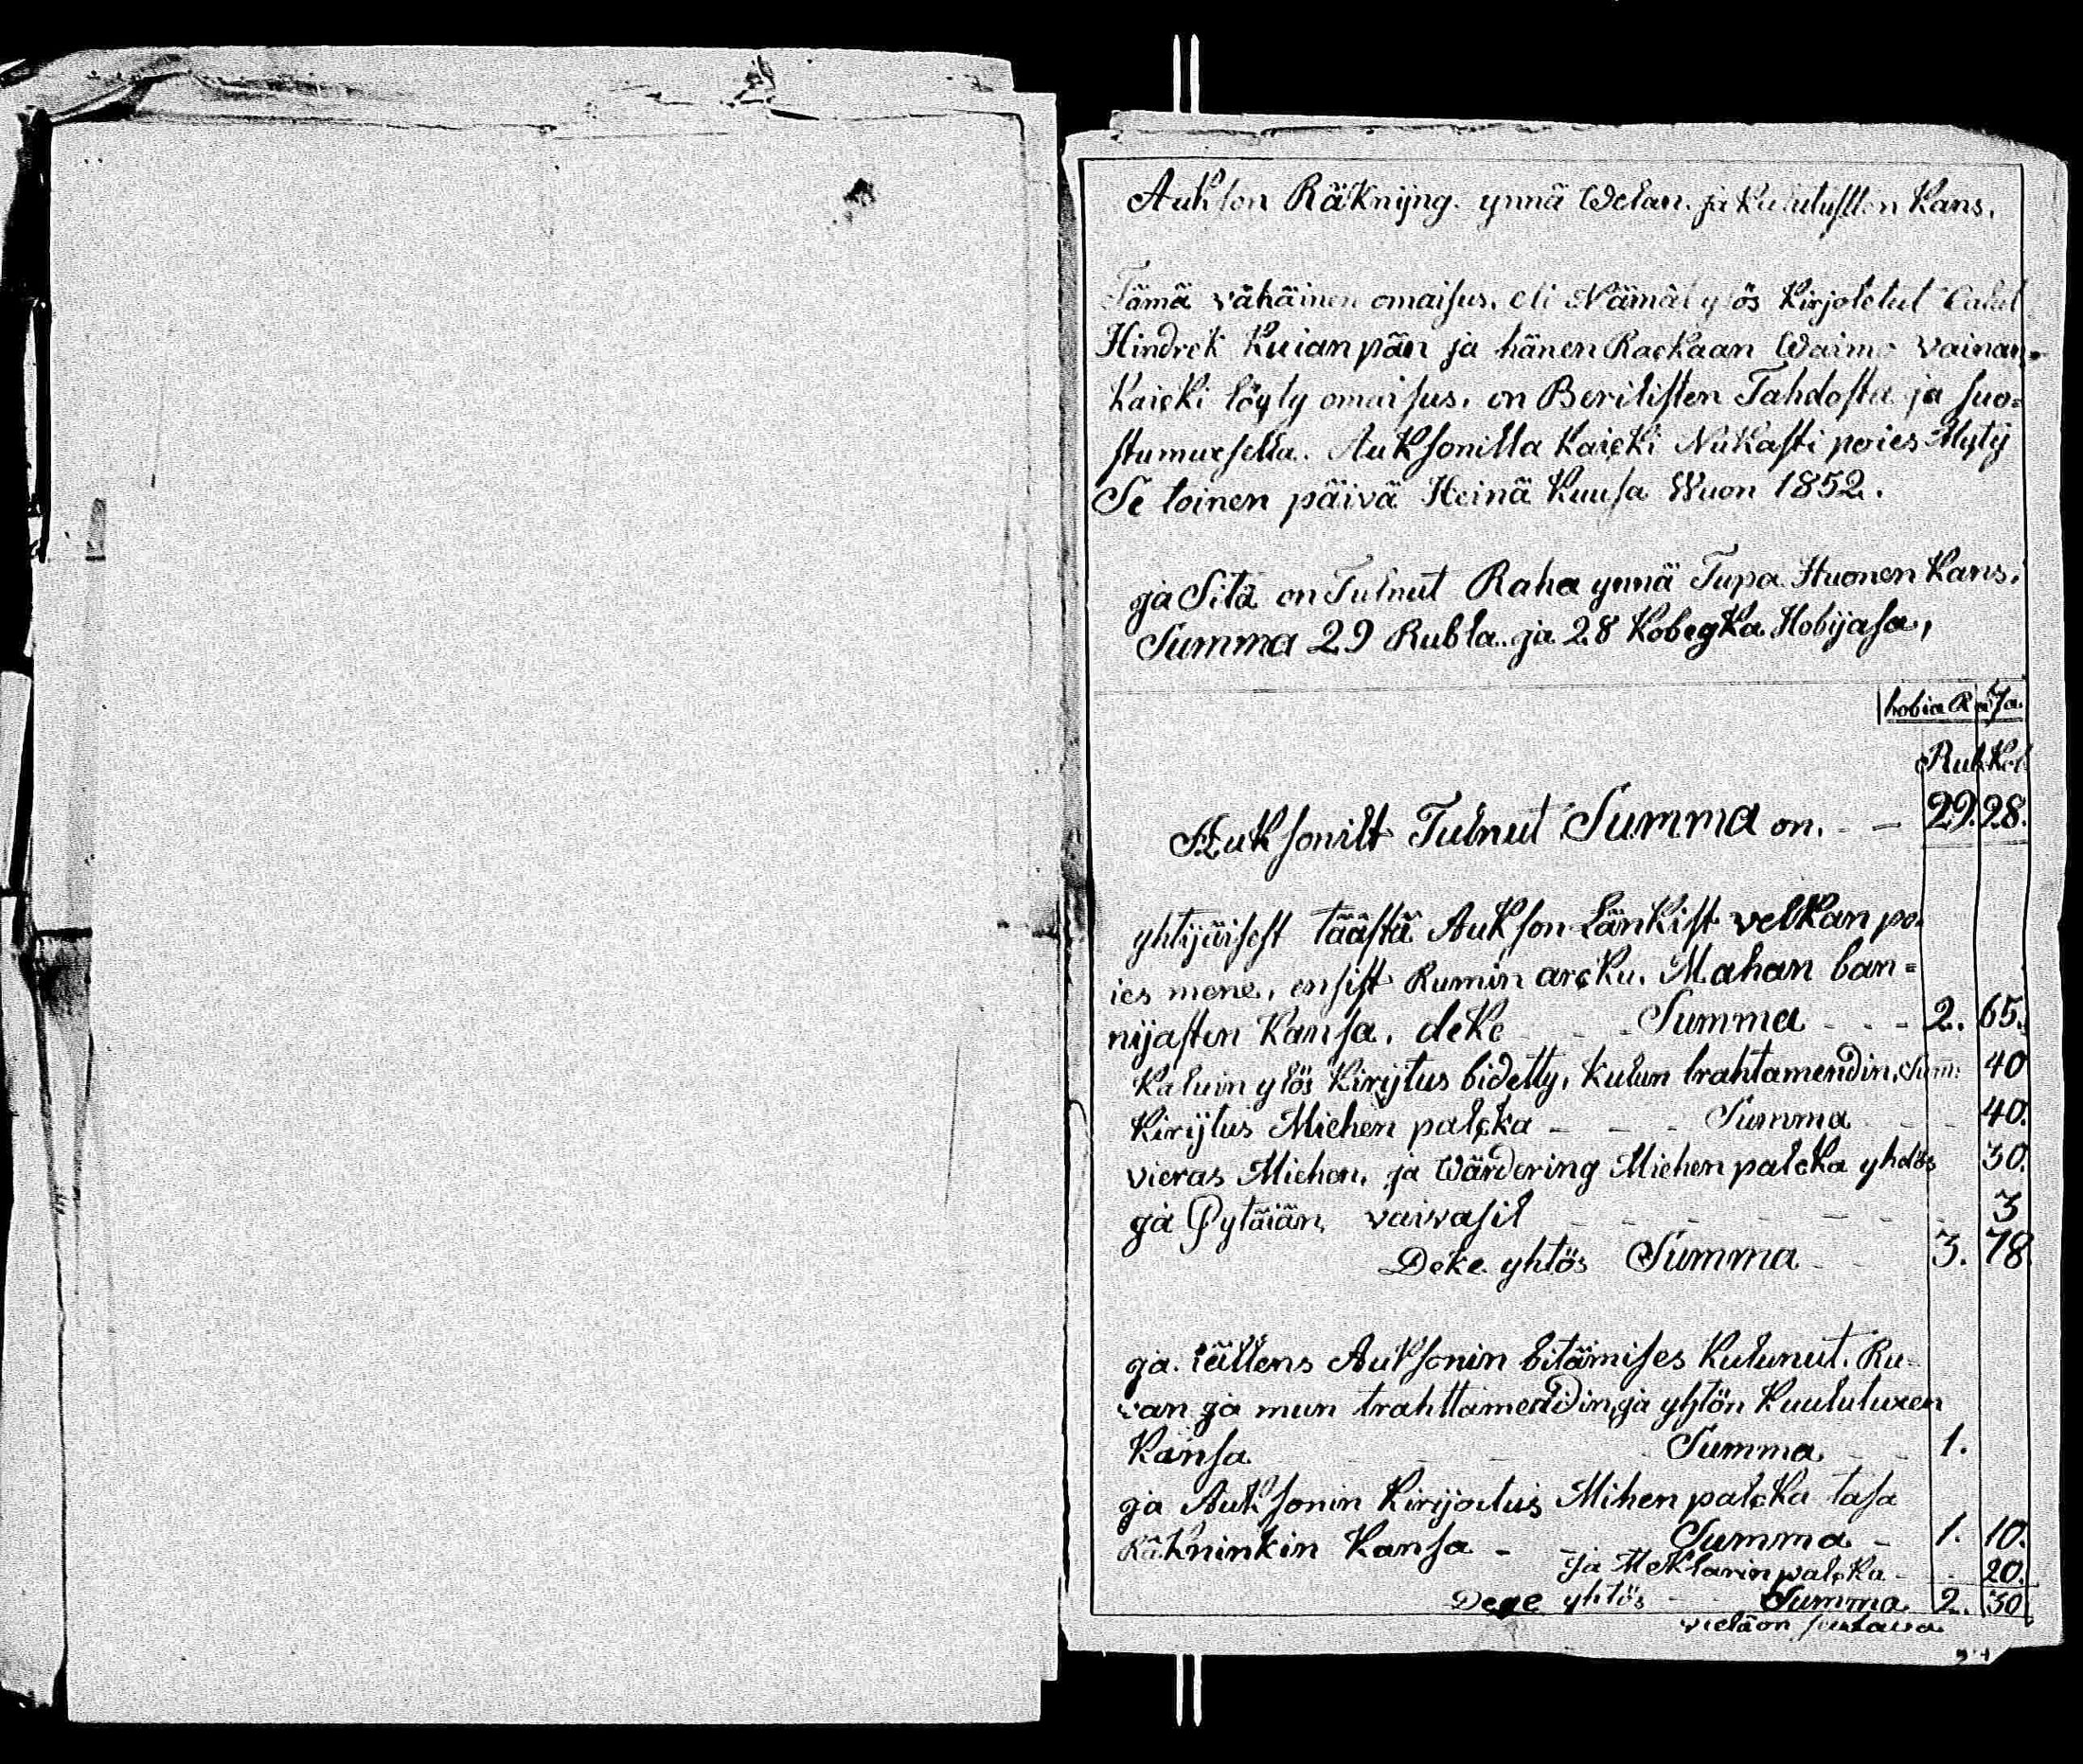 Aukſon Räknijng. ynnä Welan. ja kulutuſtten Kans.
Tämä vähäinen omaiſus. eli Nämät ylös Kirjoletut Calut
Hindrek Kuianpän ja hänen Rackaan Waimo vainan
Kaicki löyty omaiſus. on Beriliſten Tahdoſta ja ſuo=
ſtumuxſella. Aukſonilla Kaicki Nukaſti poies Myty
Se toinen päivä Heinä Kuuſa Wuon 1852.
ja Sitä on Tulnut Raha ynnä Tupa Huonen Kans.
Summa 29 Rubla. ja 28 Kobegka Hobijaſa,
hobia Raha.
Rub Kob
Aukſonilt Tulnut Summa on. - — 29. 28.
yhtijäiſeſt tääſtä Aukſon Länkiſt velkan po=
ies mene, enſiſt Rumin arcku. Mahan ban=
nijaſten Kanſa. deke - - - Summa - - - 2. 65.
Kaluin ylös Kirijtus bidetty, kulun trahtamendin. Sum: 40
Kirijtus Miehen palcka — — - Summa - - 40.
vieras Miehen, ja Wärdering Miehen palcka yhdös 30.
ja Pytäiän vaivaſil - - - - - - - 3
Deke yhtös Summa - - 3. 78
ja tällens Aukſonin bitämiſes Kulunut. Ru=
van ja mun trahttamendin, ja yhtön Kuulutuxen
Kanſa - - - - Summa - - 1.
ja Aukſonin Kirijoitus Mihen palcka taſa
Räkninkin Kanſa - - Summa - 1. 10.
ja Meklarin palcka - - 20.
Dege yhtös - - Summa 2. 30
vielä on